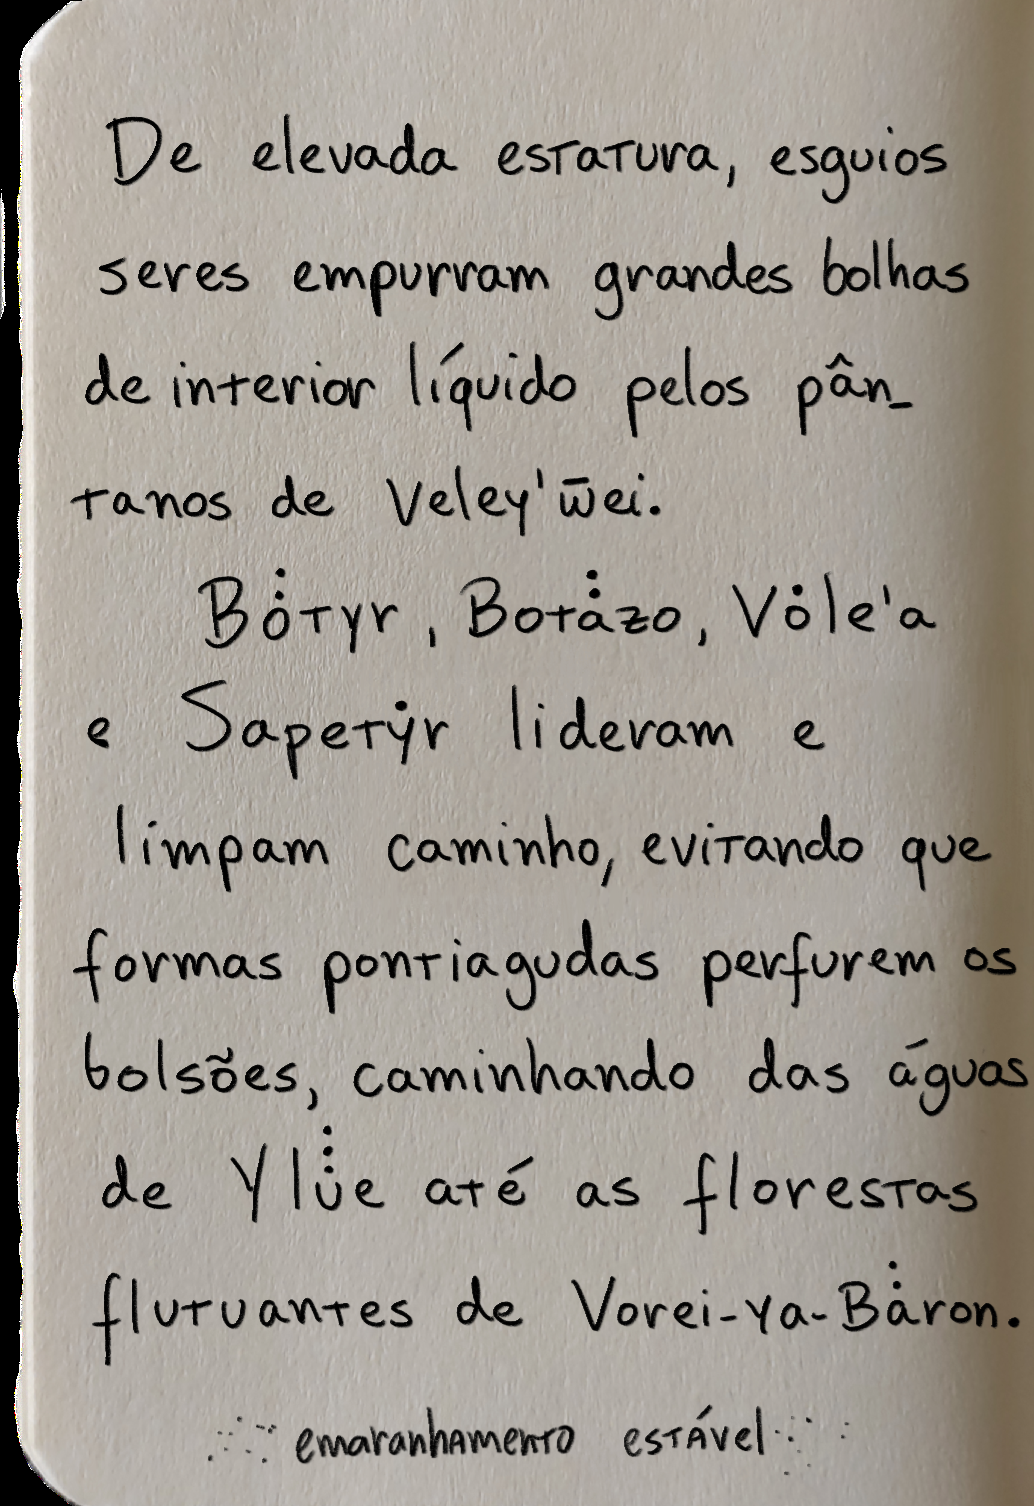 De elevada estatura, esguios
seres empurram grandes bolhas
de interior líquido pelos pân_
tanos de Veley'w̄ei.
Bȯ̇tyr, Botȧ̇zo, Vȯle'a
e Sapetẏr lideram e
limpam caminho, evitando que
formas pontiagudas perfurem os
bolsões, caminhando das águas
de Ylu̇̇̇e até as florestas
flutuantes de Vorei-ya-Bȧ̇ron.
emaranhamento estável